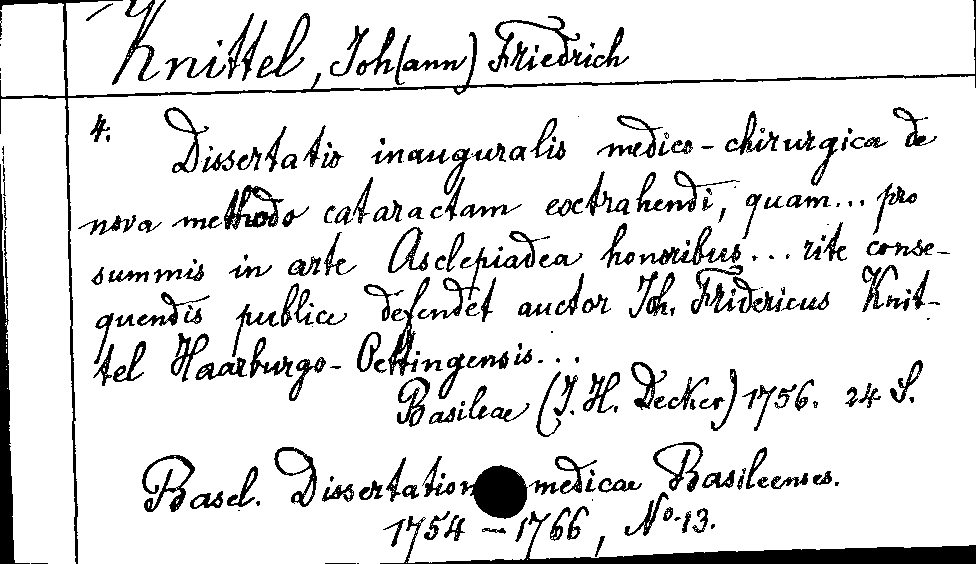 Knittel, Joh(ann) Friedrich
4. Dissertatio inauguralis medico-chirurgica de
nova methodo cataractam extrahendi, quam... pro
summis in arte Asclepiadea honoribus... rite conse-
quendis publice defendet auctor Joh. Fridericus Knit-
tel Haarburgo-Oettingensis...
Basileae (J. H. Decker) 1756. 24 S.
Basel. Dissertation medicae Basileenses.
1754-1766, No. 13.